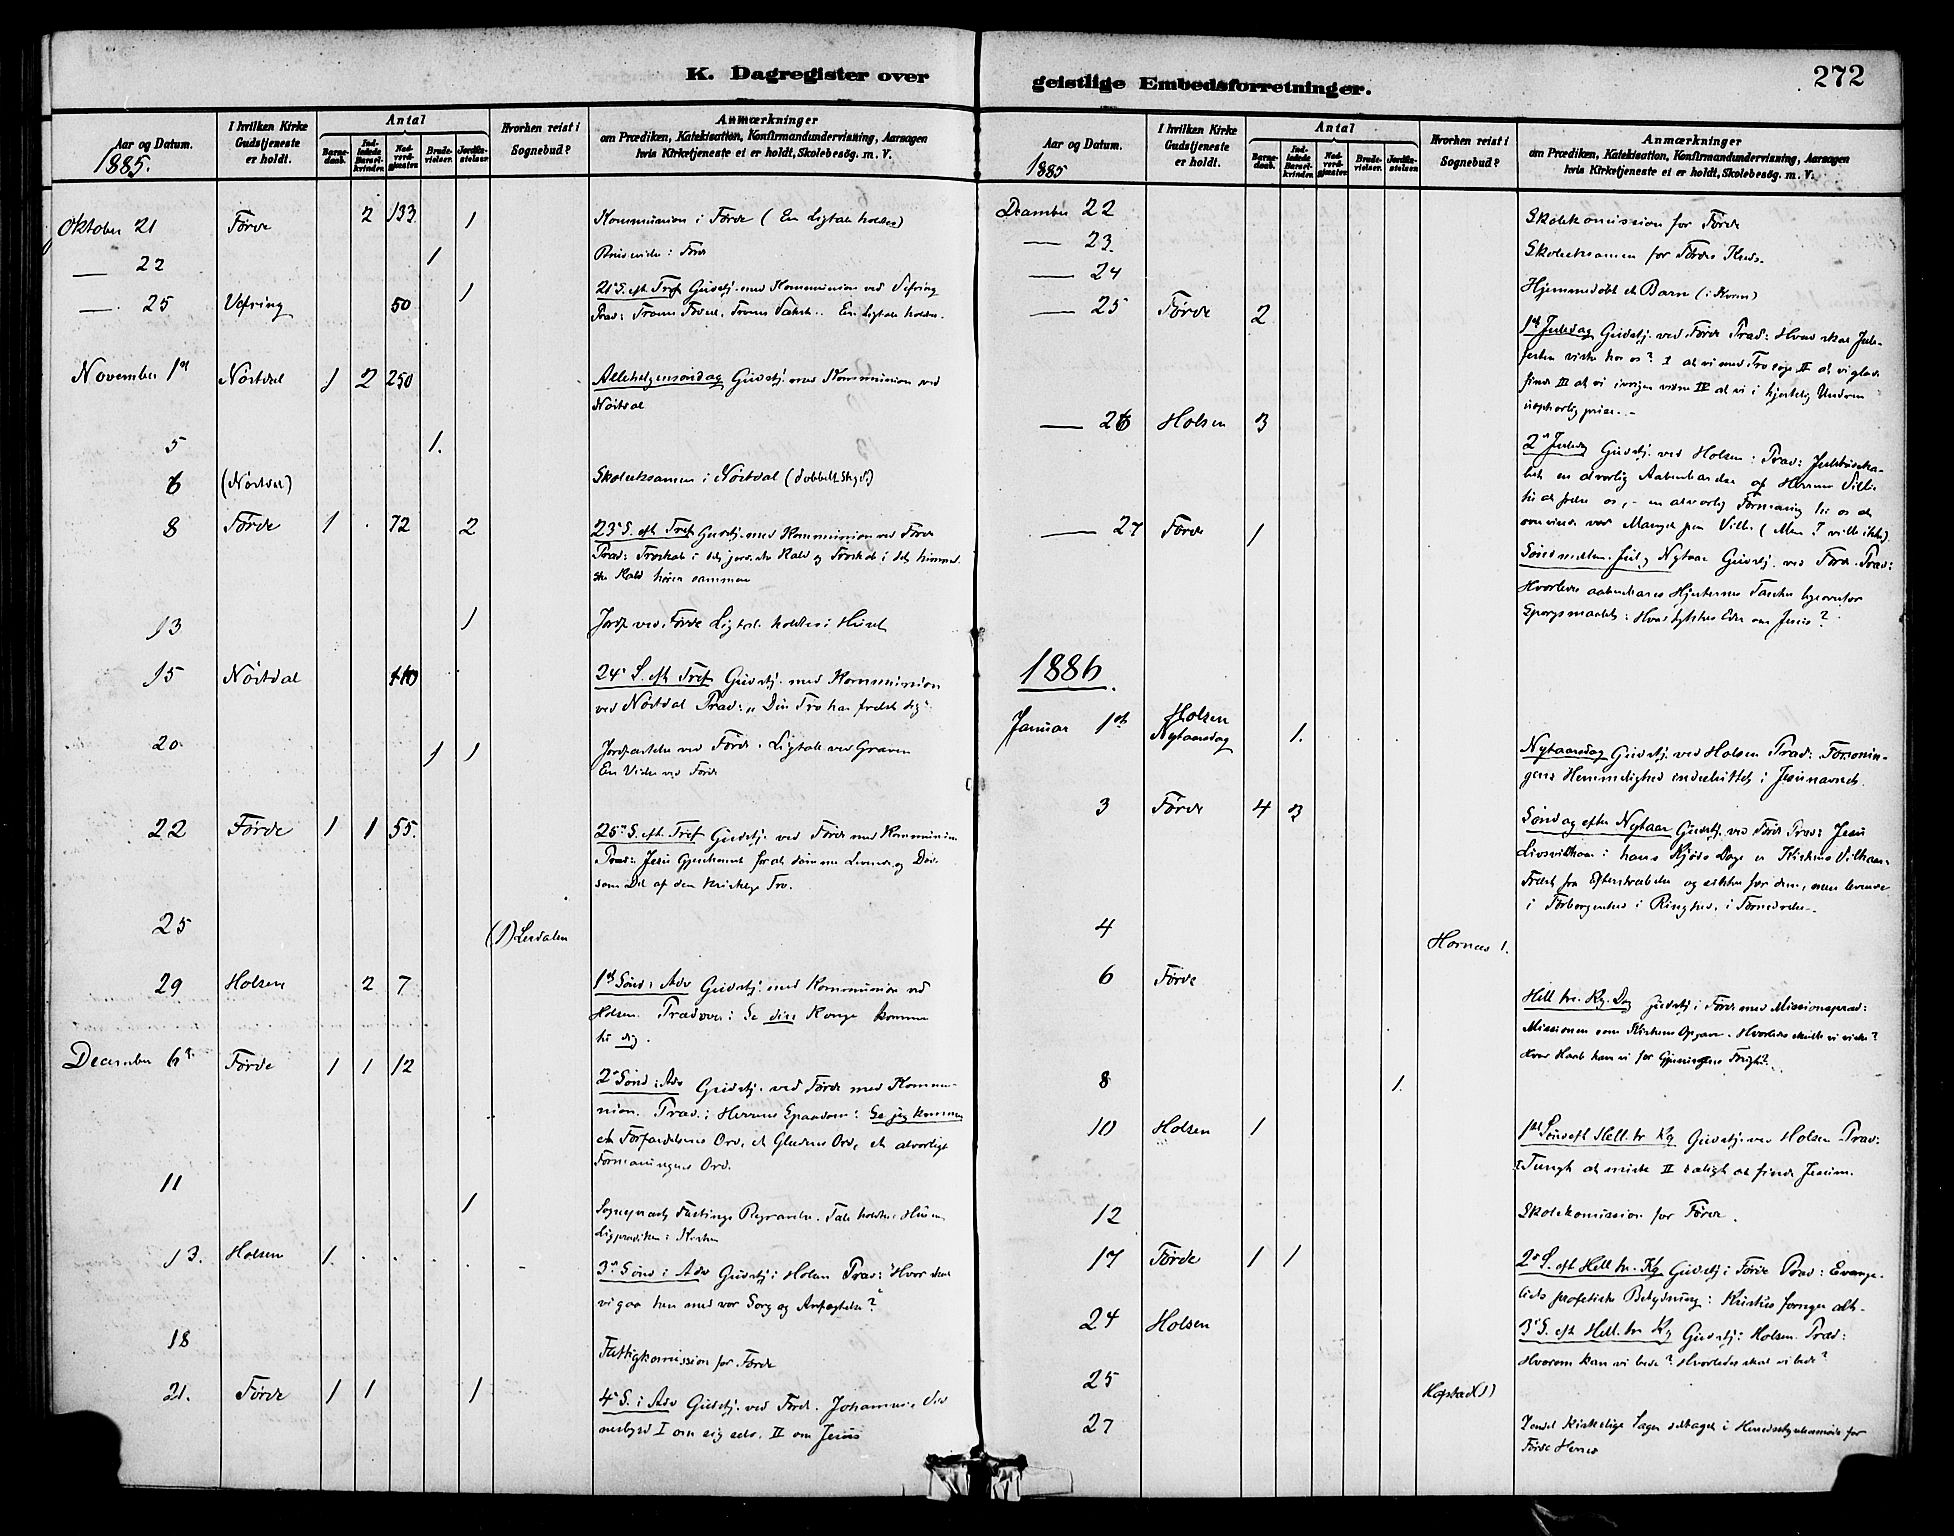 K. Dagregister over
Aar og Datum.
1885.
I hvilken Kirke
Gudstjeneste
er holdt.
Antal
Barne-
daab.
Ind-
ledede
Barsel-
kvinder.
Nad-
verd-
gjæster.
Brude-
vielser.
Jordfæ-
stelser.
Hvorhen reist i
Sognebud?
Anmærkninger
om Prædiken, Katekisation, Konfirmandundervisning, Aarsagen
hvis Kirketjeneste ei er holdt, Skolebesög. m. V.
Oktober 21 Førde 2 133 1 Kommunion i Førde (En Ligtale holdtes)
— 22 1 Førde
— 25 Vefring 50 1 21 S. eft Tref Gudstj. med Kommunion ved Vefring
Præd: En Ligtale holdtes.
November 1st Nøstdal 1 2 250 Allehelgensøndag Gudstj. med Kommunion ved
Nøstdal
5 1.
6 (Nøstdal) Skoleeksamen i Nøstdal
8 Førde 1 . 72 2 23 S. eft Tref Gudstj. med Kommunion ved Førde
Præd: Troskab i det jordiske Kald og Troskab i det himmel-
ske Kald hører sammen
13 1 Jordf. ved Førde Ligtale holdtes i Huset
15 Nøstdal 110 24 S. eft Tref Gudstj. med Kommunion
ved Nøstdal Præd: „Din Tro har frelst dig“
20 1 1 Jordfæstelse ved Førde. Ligtale ved Graven
En Vielse ved Førde
22 Førde 1 1 55. 25 S. eft Tref Gudstj. ved Førde med Kommunion
Præd: Jesu Gjenkomst for at dømme Levende og Døde
som Del af den kristelige Tro.
25 (1)
29 Holsen 2 7 1st Sønd i Adv Gudstj. med Kommunion ved
Holsen. Præd over: Se din Konge kommer
til dig.
December 6 Førde 1 1 12 2 Sønd i Adv Gudstj. ved Førde med Kommu-
nion. Præd: Herrens Spaadom: Se jeg kommer
et Forfærdelsens Ord, et Glædens Ord, et alvorligt
Formaningens Ord.
11 1 Begravelse. Tale holdtes i Huset
Ligprædiken i Kirken
13. Holsen 1. 3 Sønd i Adv Gudstj. i Holsen Præd: "Hvor skal
vi gaa hen med vor Sorg og Anfægtelse?"
18 Fattigkomission for Førde
21. Førde 1 1 1 4 S. i Adv Gudstj. ved Førde. Johannes's Vid-
nesbyrd I om sig selv. II om Jesus
geistlige Embedsforretninger.
272
Aar og Datum.
1885
I hvilken Kirke
Gudstjeneste
er holdt.
Antal
Barne-
daab.
Ind-
ledede
Barsel-
kvinder.
Nad-
verd-
gjæster.
Brude-
vielser.
Jordfæ-
stelser.
Hvorhen reist i
Sognebud?
Anmærkninger
om Prædiken, Katekisation, Konfirmandundervisning, Aarsagen
hvis Kirketjeneste ei er holdt, Skolebesög. m. V.
December 22 Skolekomission for Førde
— 23 Skoleeksamen for Førde Kreds.
— 24 Hjemmedøbt et Barn
— 25 Førde 2 1st Juledag Gudstj. ved Førde Præd: Hvad skal Jule-
festen virke hos os? I at vi med Tro søge II at vi glade
finde III at vi ivrigen vidne IV at vi i hjertelig Undren
uophørlig prise.
— 26 Holsen 3 2 Juledag Gudstj. ved Holsen: Præd: Julebudska-
bet en alvorlig Aabenbarelse af Herrens Villie
til at frelse os, - en alvorlig Formaning til os at
overvinde vor Mangel paa Villie (Men I ville ikke).
— 27 Førde 1 Sønd mellem Jul og Nytaar Gudstj. ved Førde. Præd:
Hvorledes aabenbares Hjerternes Tanker ligeoverfor
Spørgsmaalet: Hvad tykkes Eder om Jesus?
1886.
Januar 1st Holsen
Nytaarsdag 1. Nytaarsdag Gudstj. ved Holsen Præd: Forsonin-
gens Hemmelighed indesluttet i Jesu navnet.
3 Førde 4 3 Søndag efter Nytaar Gudstj. ved Førde Præd: Jesu
Livsvilkaar i hans Kjøds Dage er Kirkens Vilkaar.
Frelst fra Efterstræbelse og sikker for dem, men levende
i Forborgenhed i Ringhed, i Fornedrelse.
4 Hornes 1.
6 Førde Hell tre Kg. Dag Gudstj i Førde med Missionspræd:
Missionen som Kirkens Opgave. Hvorledes skulle vi virke?
Hvad Haab kan vi for Gjerningens Frugt?
8 1.
10 Holsen 1 1st Sønd eft Hell. tr Kg Gudstj. ved Holsen Præd:
I Tungt at miste II saligt at finde Jesum.
12 Skolekomission for Førde.
17 Førde 1 1 2 S. eft Hell tr. Kg Gudstj i Førde Præd: Evange-
liets profetiske Betydning: Kristus fornyer alt.
24 Holsen 3 S. eft Hell. tr Kg Gudstj: Holsen. Præd:
Hvorom kan vi bede? Hvorledes skal vi bede?
25 Hafstad (1)
27 kirkelige Sager for
Førde Herred